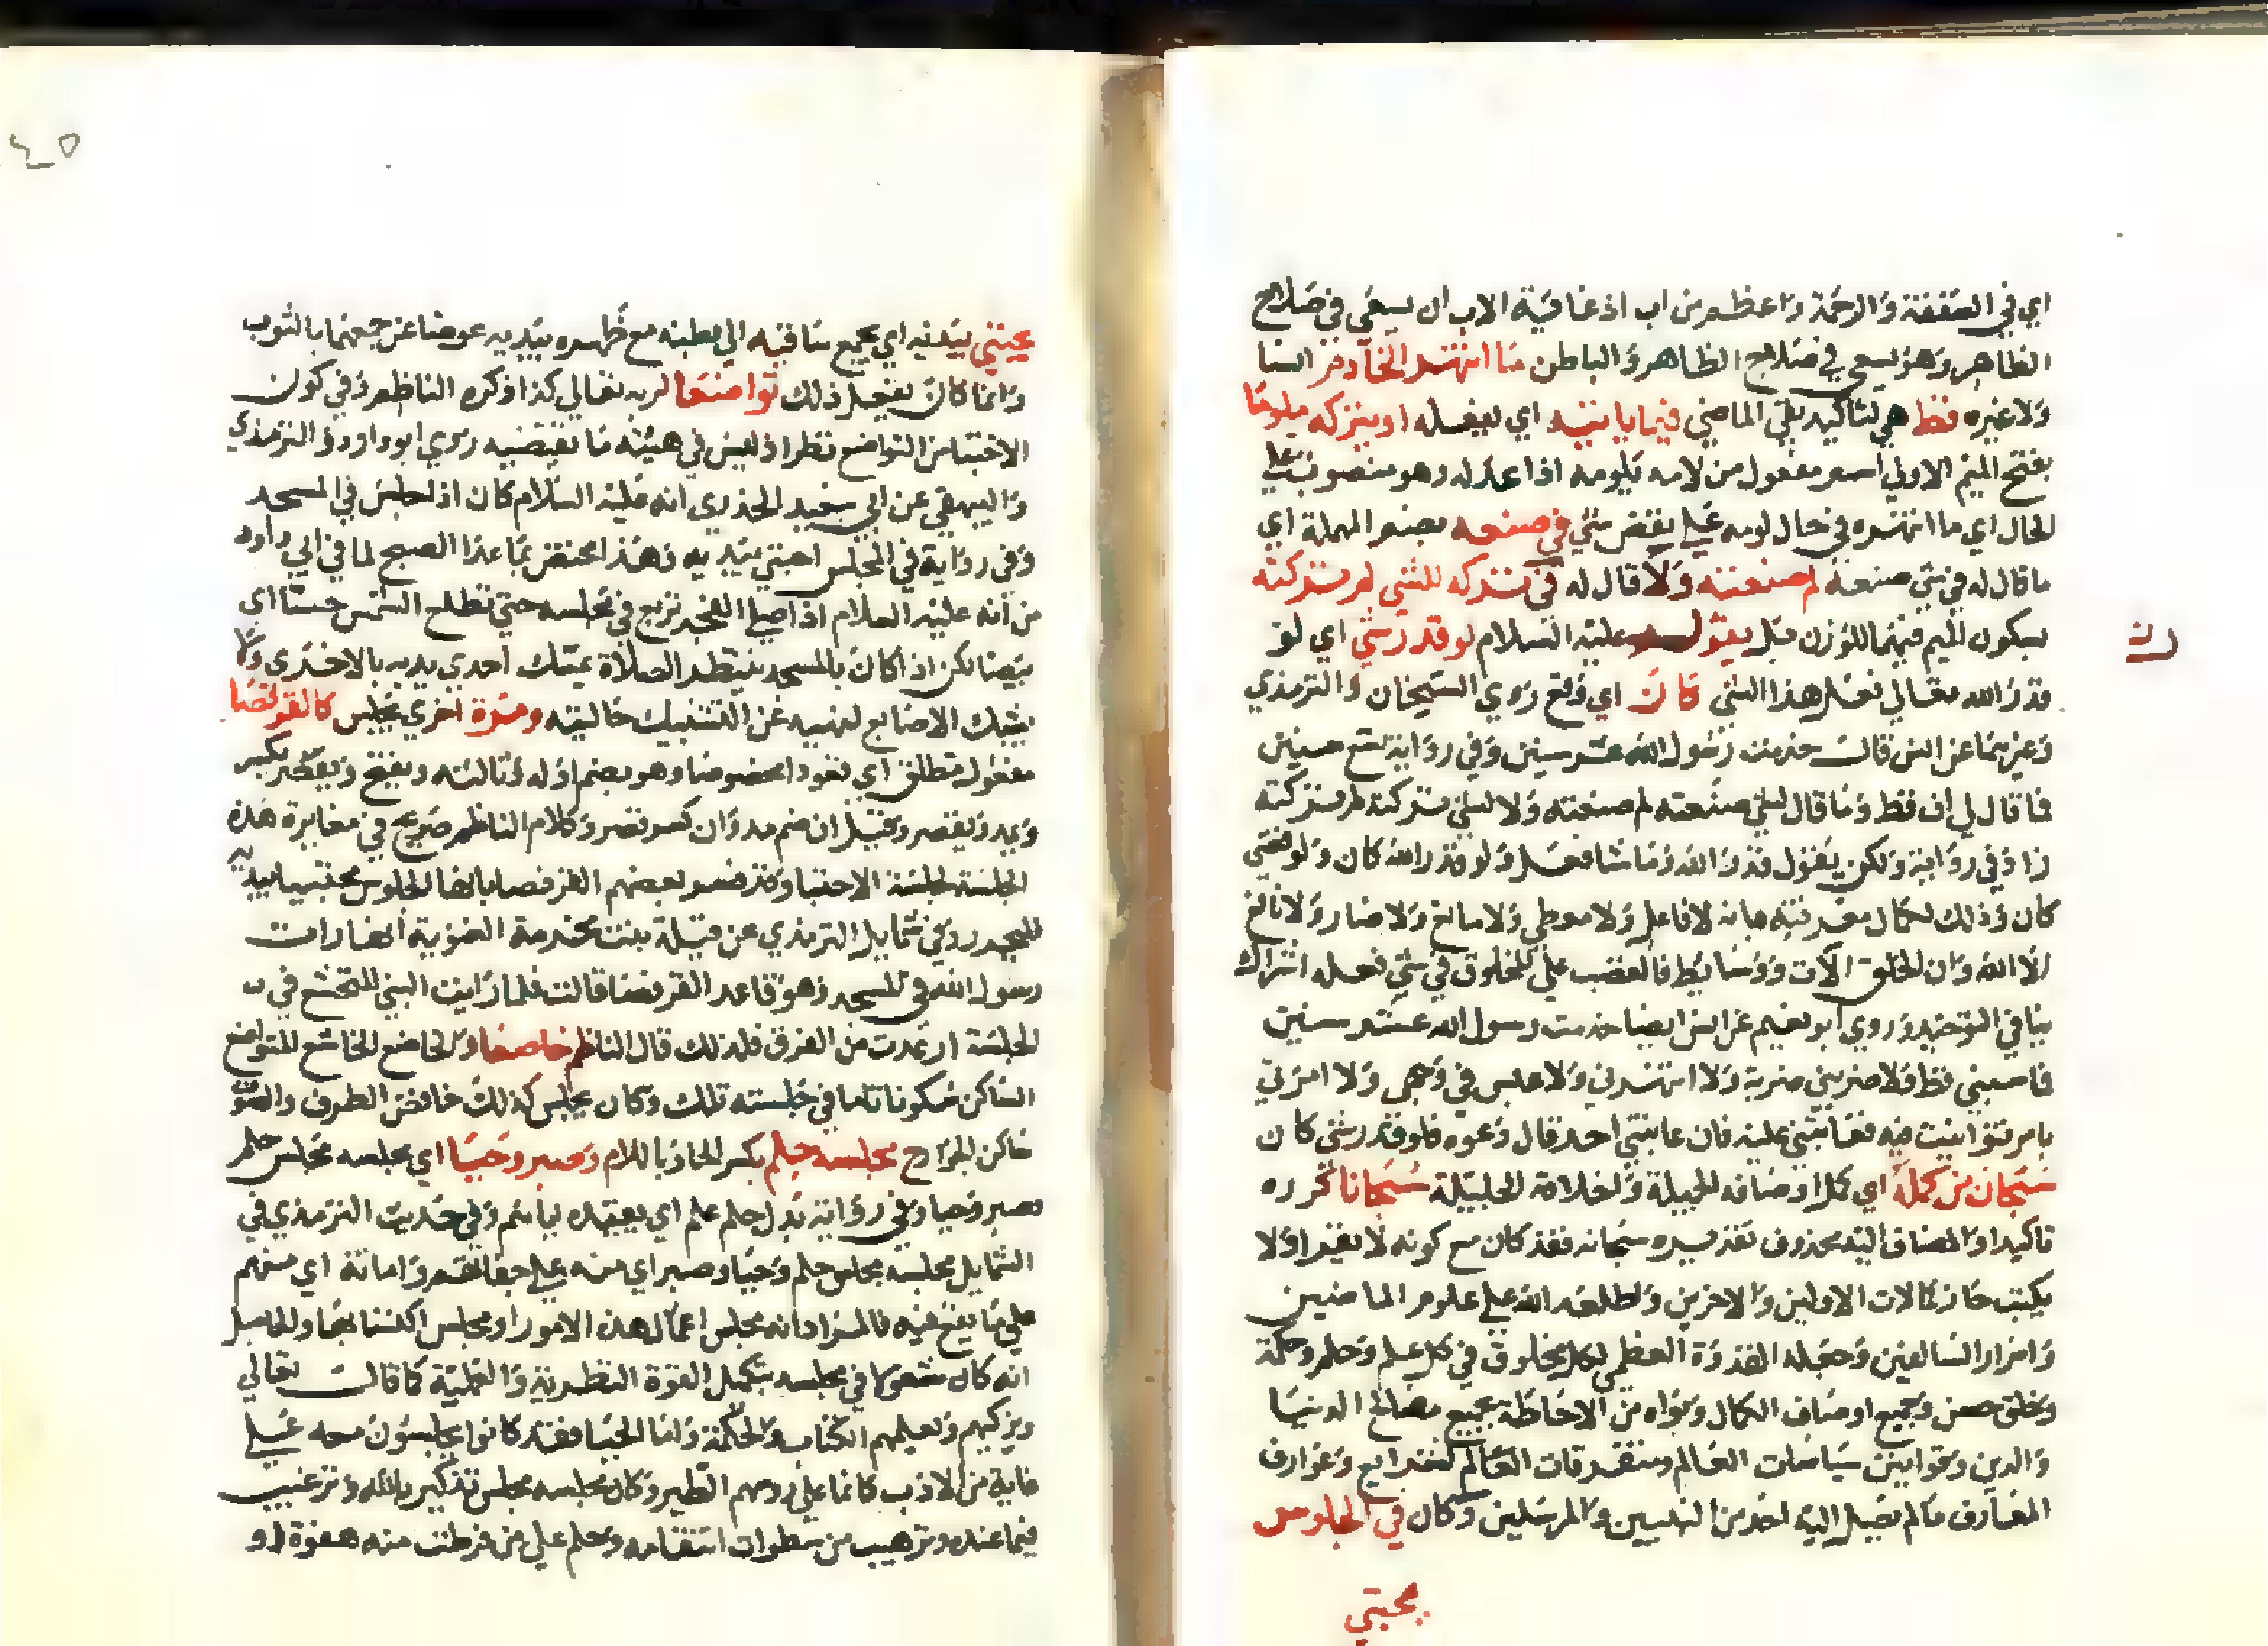 اي في الشفقة والرحمة واعظم من اب اذ غاية الاب ان يسعى في صلاح
الظاهر وهو يسعى في صلاح الظاهر والباطن ما انتهر الخادم انسا
ولا غيره قط هي لتاكيد نفي الماضي فيما ياتيه اي يفعله او يتركه ملوما
بفتح الميم الاولي اسم مفعول من لامه يلومه اذا عذله وهو منصوب علي
الحال اي ما انتهره في حال لومه علي بعض شي في صنعه بضم المهملة اي
ما قال له في شي صنعه لم صنعته ولا قال له في تركه للشي لم تركته
بسكون الميم فيهما للوزن بل يقول عليه السلام لو قدر شي اي لو
قدر الله تعالي فعل هذا الشي كان اي وقع روي الشيخان والترمذي
وغيرهما عن انس قال خدمت رسول الله عشر سنين وفي رواية تسع سنين
فما قال لي اف قط وما قال لشي صنعته لم صنعته ولا لشي تركته لم تركته
زاد في رواية ولكن يقول قدر الله وما شا فعل ولو قدر الله كان ولو قضي
كان وذلك لكمال معرفته بانه لا فاعل ولا معطي ولا مانع ولا ضار ولا نافع
الا الله وان الخلق الات ووسايط فالغضب علي المخلوق في شي فعله اشراك
ينافي التوحيد وروي ابو نعيم عن انس ايضا خدمت رسول الله عشر سنين
فما سبني قط ولا ضربني ضربة ولا انتهرني ولا عبس في وجهي ولا امرني
بامر فتوانيت فيه فعاتبني عليه فان عاتبني احد قال دعوه فلو قدر شي كان
سبحان من كمله اي كمل اوصافه الجميلة واخلاقه الجليلة سبحانا كرره
تاكيدا والمضاف اليه محذوف تقديره سبحانه فقد كان مع كونه لا يقرا ولا
يكتب حاز كمالات الاولين والاخرين واطلعه الله علي علوم الماضين
واسرار السالفين وجعله القدوة العظمي لكل مخلوق في كل علم وحلم وحكمة
وخلق حسن وجميع اوصاف الكمال وبواه من الاحاطة بجميع مصالح الدنيا
والدين وقوانين سياسات العالم ومتفرقات العالم الشرايع وعوارف
المعارف ما لم يصل اليه احد من النبيين والمرسلين وكان في الجلوس
يحتبي
ن
٤٥
يحتبي بيديه اي يجمع ساقيه الي بطنه مع ظهره بيديه عوضا عن جمعهما بالثوب
وانما كان يفعل ذلك تواضعا لربه تعالي كذا ذكره الناظم وفي كون
الاحتبا من التواضع نظر اذ ليس في هيئته ما يقتضيه روي ابو داود والترمذي
والبيهقي عن ابي سعيد الخدري انه عليه السلام كان اذا جلس في المسجد
وفي رواية في المجلس احتبي بيديه وهذا مختص بما عدا الصبح لما في ابي داود
من انه عليه السلام اذا صلي الفجر تربع في مجلسه حتي تطلع الشمس حسنا اي
بيضا لكن اذا كان بالمسجد ينتظر الصلاة يمسك احدي يديه بالاخري ولا
يشبك الاصابع لنهيه عن التشبيك حالتيه ومرة اخري يجلس كالقرفصا
مفعول مطلق اي قعودا مخصوصا وهو بضم اوله وثالثه ويفتح ويكسر
ويمد ويقصر وقيل ان ضم مد وان كسر قصر وكلام الناظم صريح في مغايرة هذه
الجلسة لجلسة الاحتبا وقد فسر بعضهم القرفصا بانها الجلوس محتبيا بيديه
روي في شمايل الترمذي عن قيلة بنت مخرمة العنوية انها رات
رسول الله في المسجد وهو قاعد القرفصا قالت فلما رايت النبي المتخشع في
الجلسة ارعدت من الفرق فلذلك قال الناظم خاضعا والخاضع الخاشع المتواضع
الساكن سكونا تاما في جلسته تلك وكان يجلس كذلك خافض الطرف والصوت
ساكن الجوارح مجلسه حلم بكسر الحا وباللام وصبر وحيا اي مجلسه مجلس حلم
وصبر وحيا وفي رواية بدل حلم علم اي يفيده اياهم وفي حديث الترمذي في
الشمايل مجلسه مجلس حلم وحيا وصبر اي منه علي جفائهم وامانة اي منهم
علي ما يقع فيه فالمراد انه مجلس اعمال هذه الامور او مجلس اكتسابها والحاصل
انه كان في مجلسه بتكميل القوة النظرية والعملية كما قال تعالي
ويزكيهم ويعلمهم الكتاب والحكمة واما الحيا فقد كانوا يجلسون معه علي
غاية من الادب كانما علي روسهم الطير وكان مجلسه مجلس تذكير بالله وترغيب
فيما عنده وترهيب من سطوات انتقامه وحلم علي من فرطت منه هفوة او